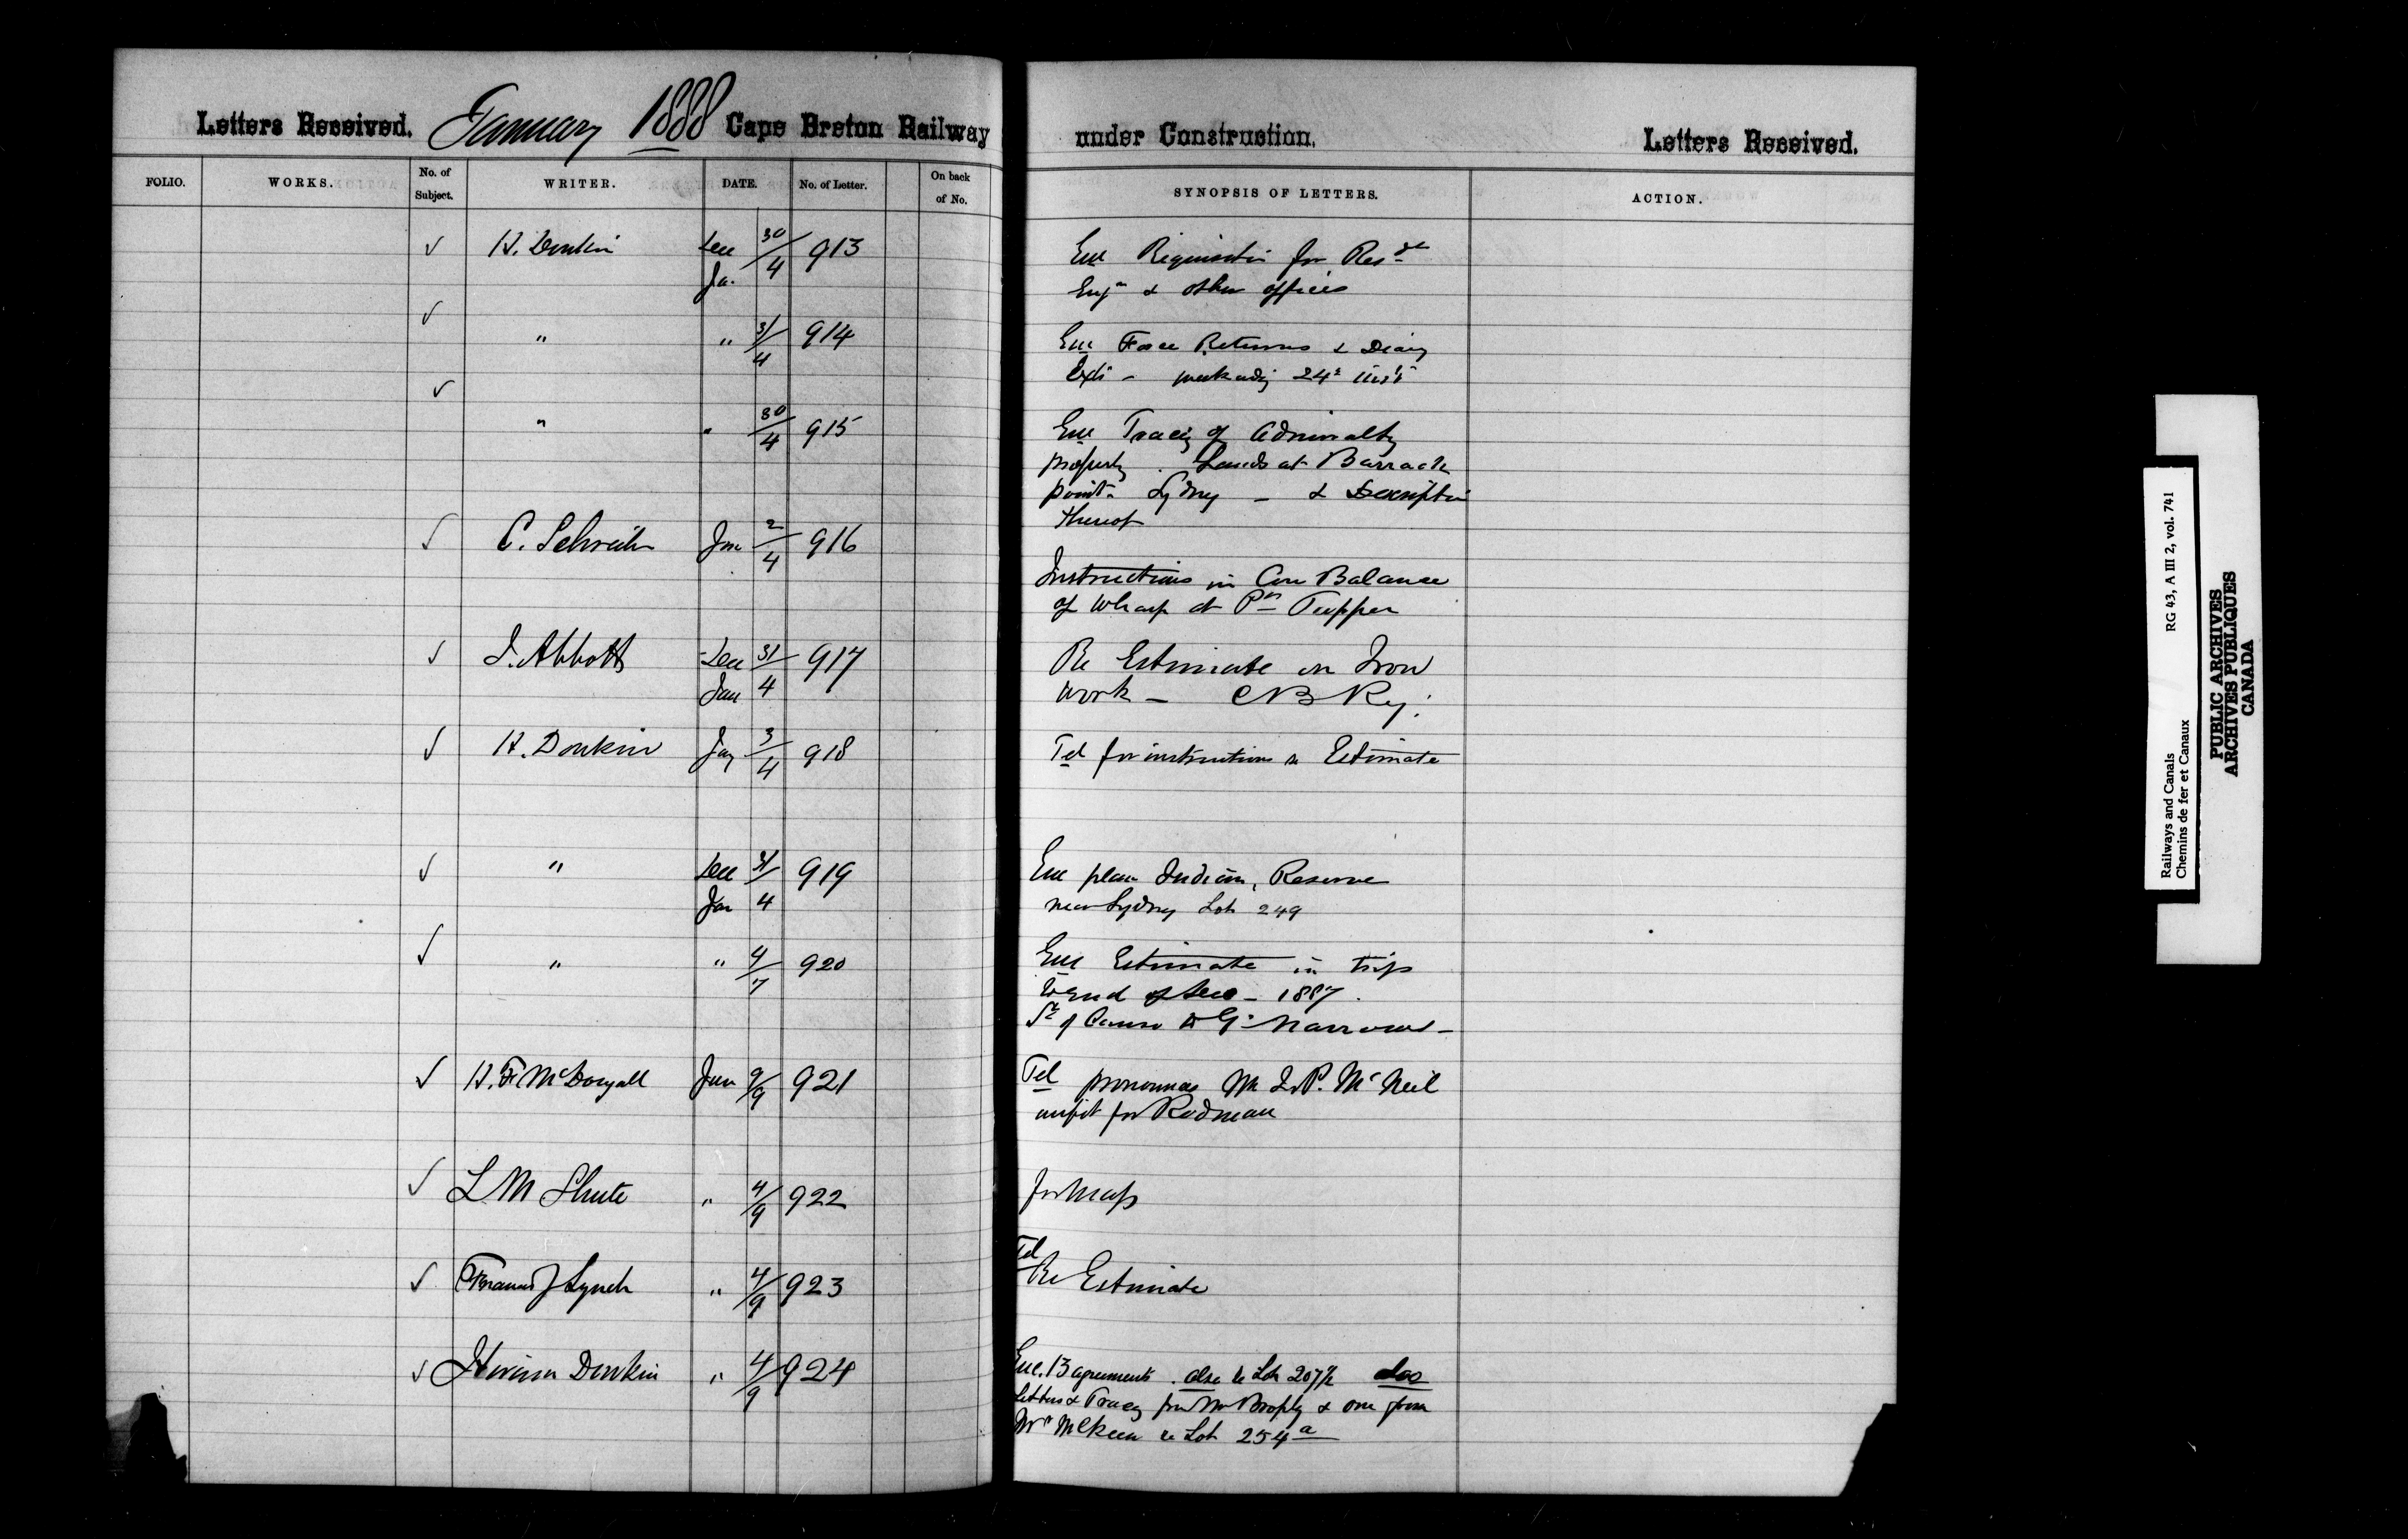 Letters Received. January 1888 Cape Breton Railway under Construction. Letters Received.
FOLIO. WORKS. No. of Subject. WRITER. DATE. No. of Letter. On back of No. SYNOPSIS OF LETTERS. ACTION.
✓ H. Donkin Dec 30/ 913 Enc Requisition for Resdt
Ja. 4 Engr & other offices
✓ " " 31/4 914 Enc Force Returns & Diary
week endg 24th inst
✓ " " 30/4 915 Enc Tracig of Admiralty
property. Lands at Barrack
point Sydney - & Description
thereof
✓ C. Schreiber Jan 2/4 916
Instructions in Balance
of Wharf at Pn Tupper
✓ J. Abbott Dec 31/ 917 Re Estimate on Iron
Jan 4 work - C B Ry.
✓ H. Donkin Jay 3/4 918 Tel for instructions re Estimate
✓ " Dec 31/ 919 Enc plan Indian Reserve
Jan 4 near Sydney Lot 249
✓ " " 4/7 920 Enc Estimate in trip
to end of Dec - 1887.
St of Canso to G. Narrows -
✓ H. F. McDougall Jan 9/9 921 Tel pronounces Mr J. P. McNeil
unfit for Rodman
✓ L M Shute " 4/9 922 for Map
✓ Francis J Lynch " 4/9 923 Tel
Re Estimate
✓ Hiram Donkin " 4/9 924 Enc. 13 agreements. also re Lot 207½ also
Letters & Tracg from Mr Brophy & one from
Mr McKeen re Lot 254a
Railways and Canals RG 43, A III 2, vol. 741
Chemins de fer et Canaux
PUBLIC ARCHIVES
ARCHIVES PUBLIQUES
CANADA